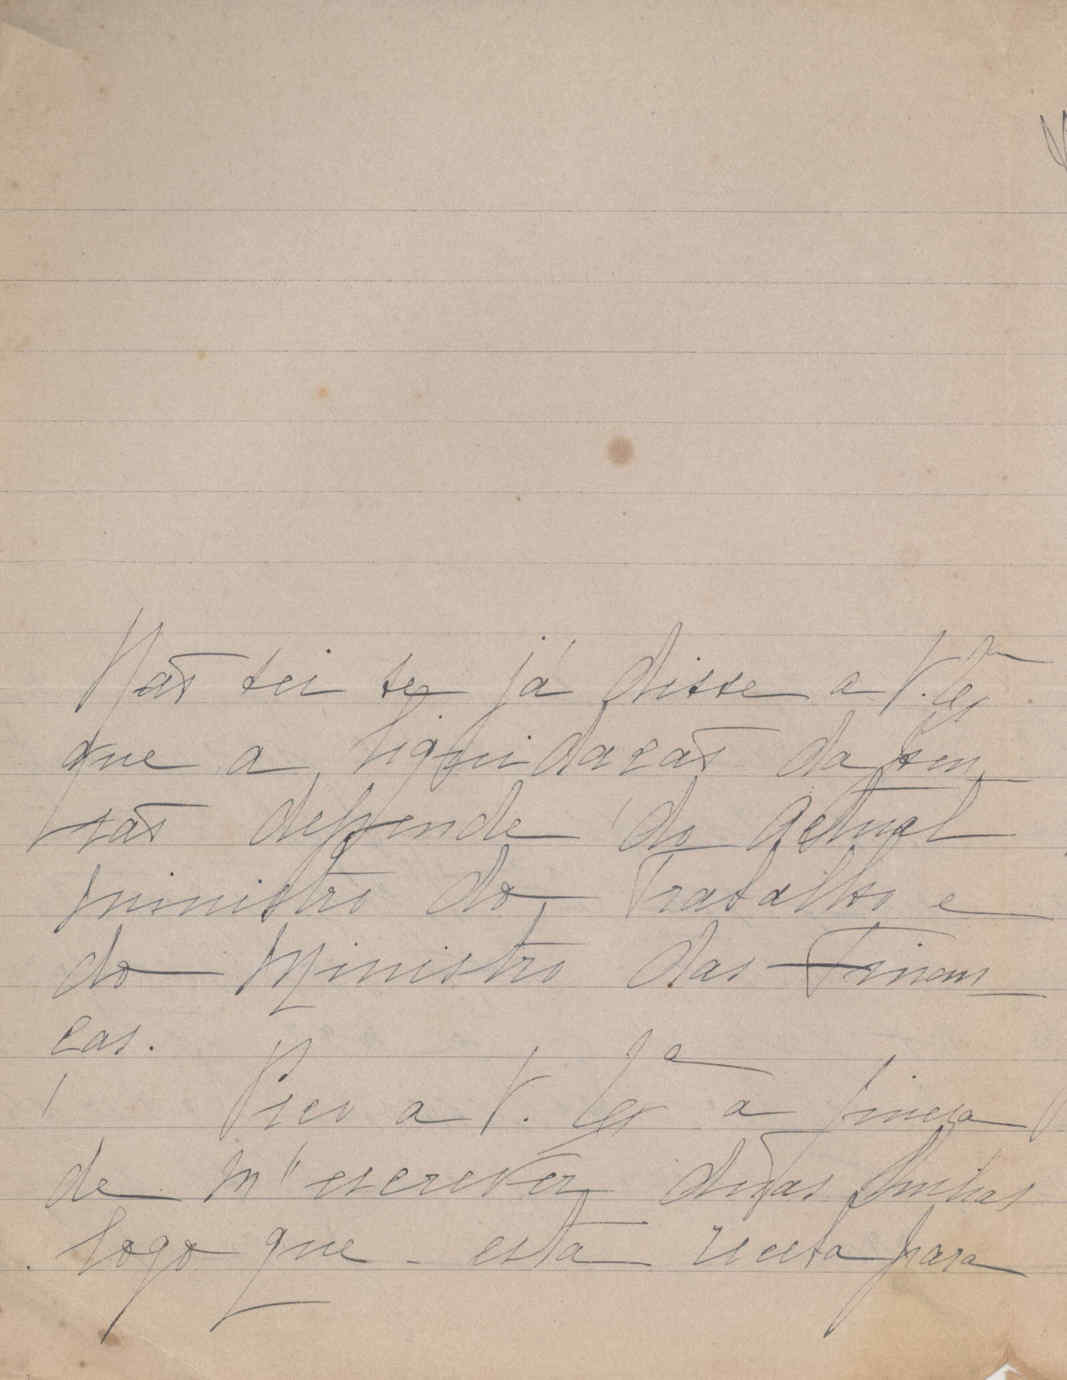 Não sei se já disse a V. Exª
que a liquidação da pen
são depende do actual
ministro do Trabalho e
do Ministro das Finan
ças.
Peço a V. Exª a fineza
de m'escrever duas linhas
logo que esta receba para